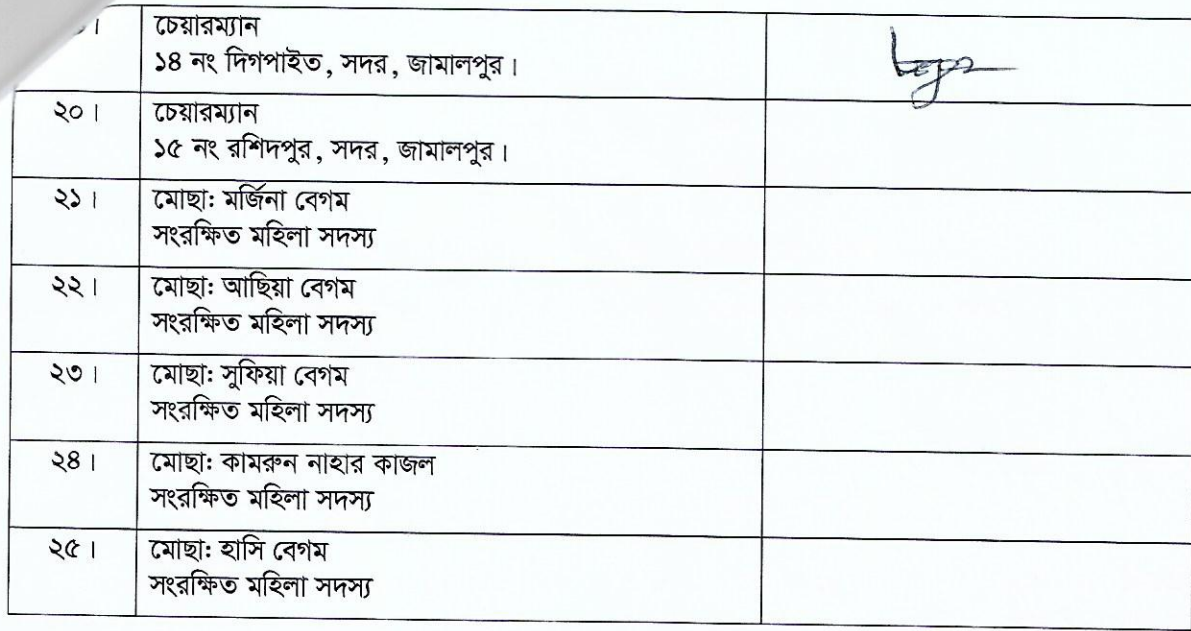 । চেয়ারম্যান
১৪ নং দিগপাইত, সদর, জামালপুর।
২০। চেয়ারম্যান
১৫ নং রশিদপুর, সদর, জামালপুর।
২১। মোছা: মর্জিনা বেগম
সংরক্ষিত মহিলা সদস্য
২২। মোছা: আছিয়া বেগম
সংরক্ষিত মহিলা সদস্য
২৩। মোছা: সুফিয়া বেগম
সংরক্ষিত মহিলা সদস্য
২৪। মোছা: কামরুন নাহার কাজল
সংরক্ষিত মহিলা সদস্য
২৫। মোছা: হাসি বেগম
সংরক্ষিত মহিলা সদস্য